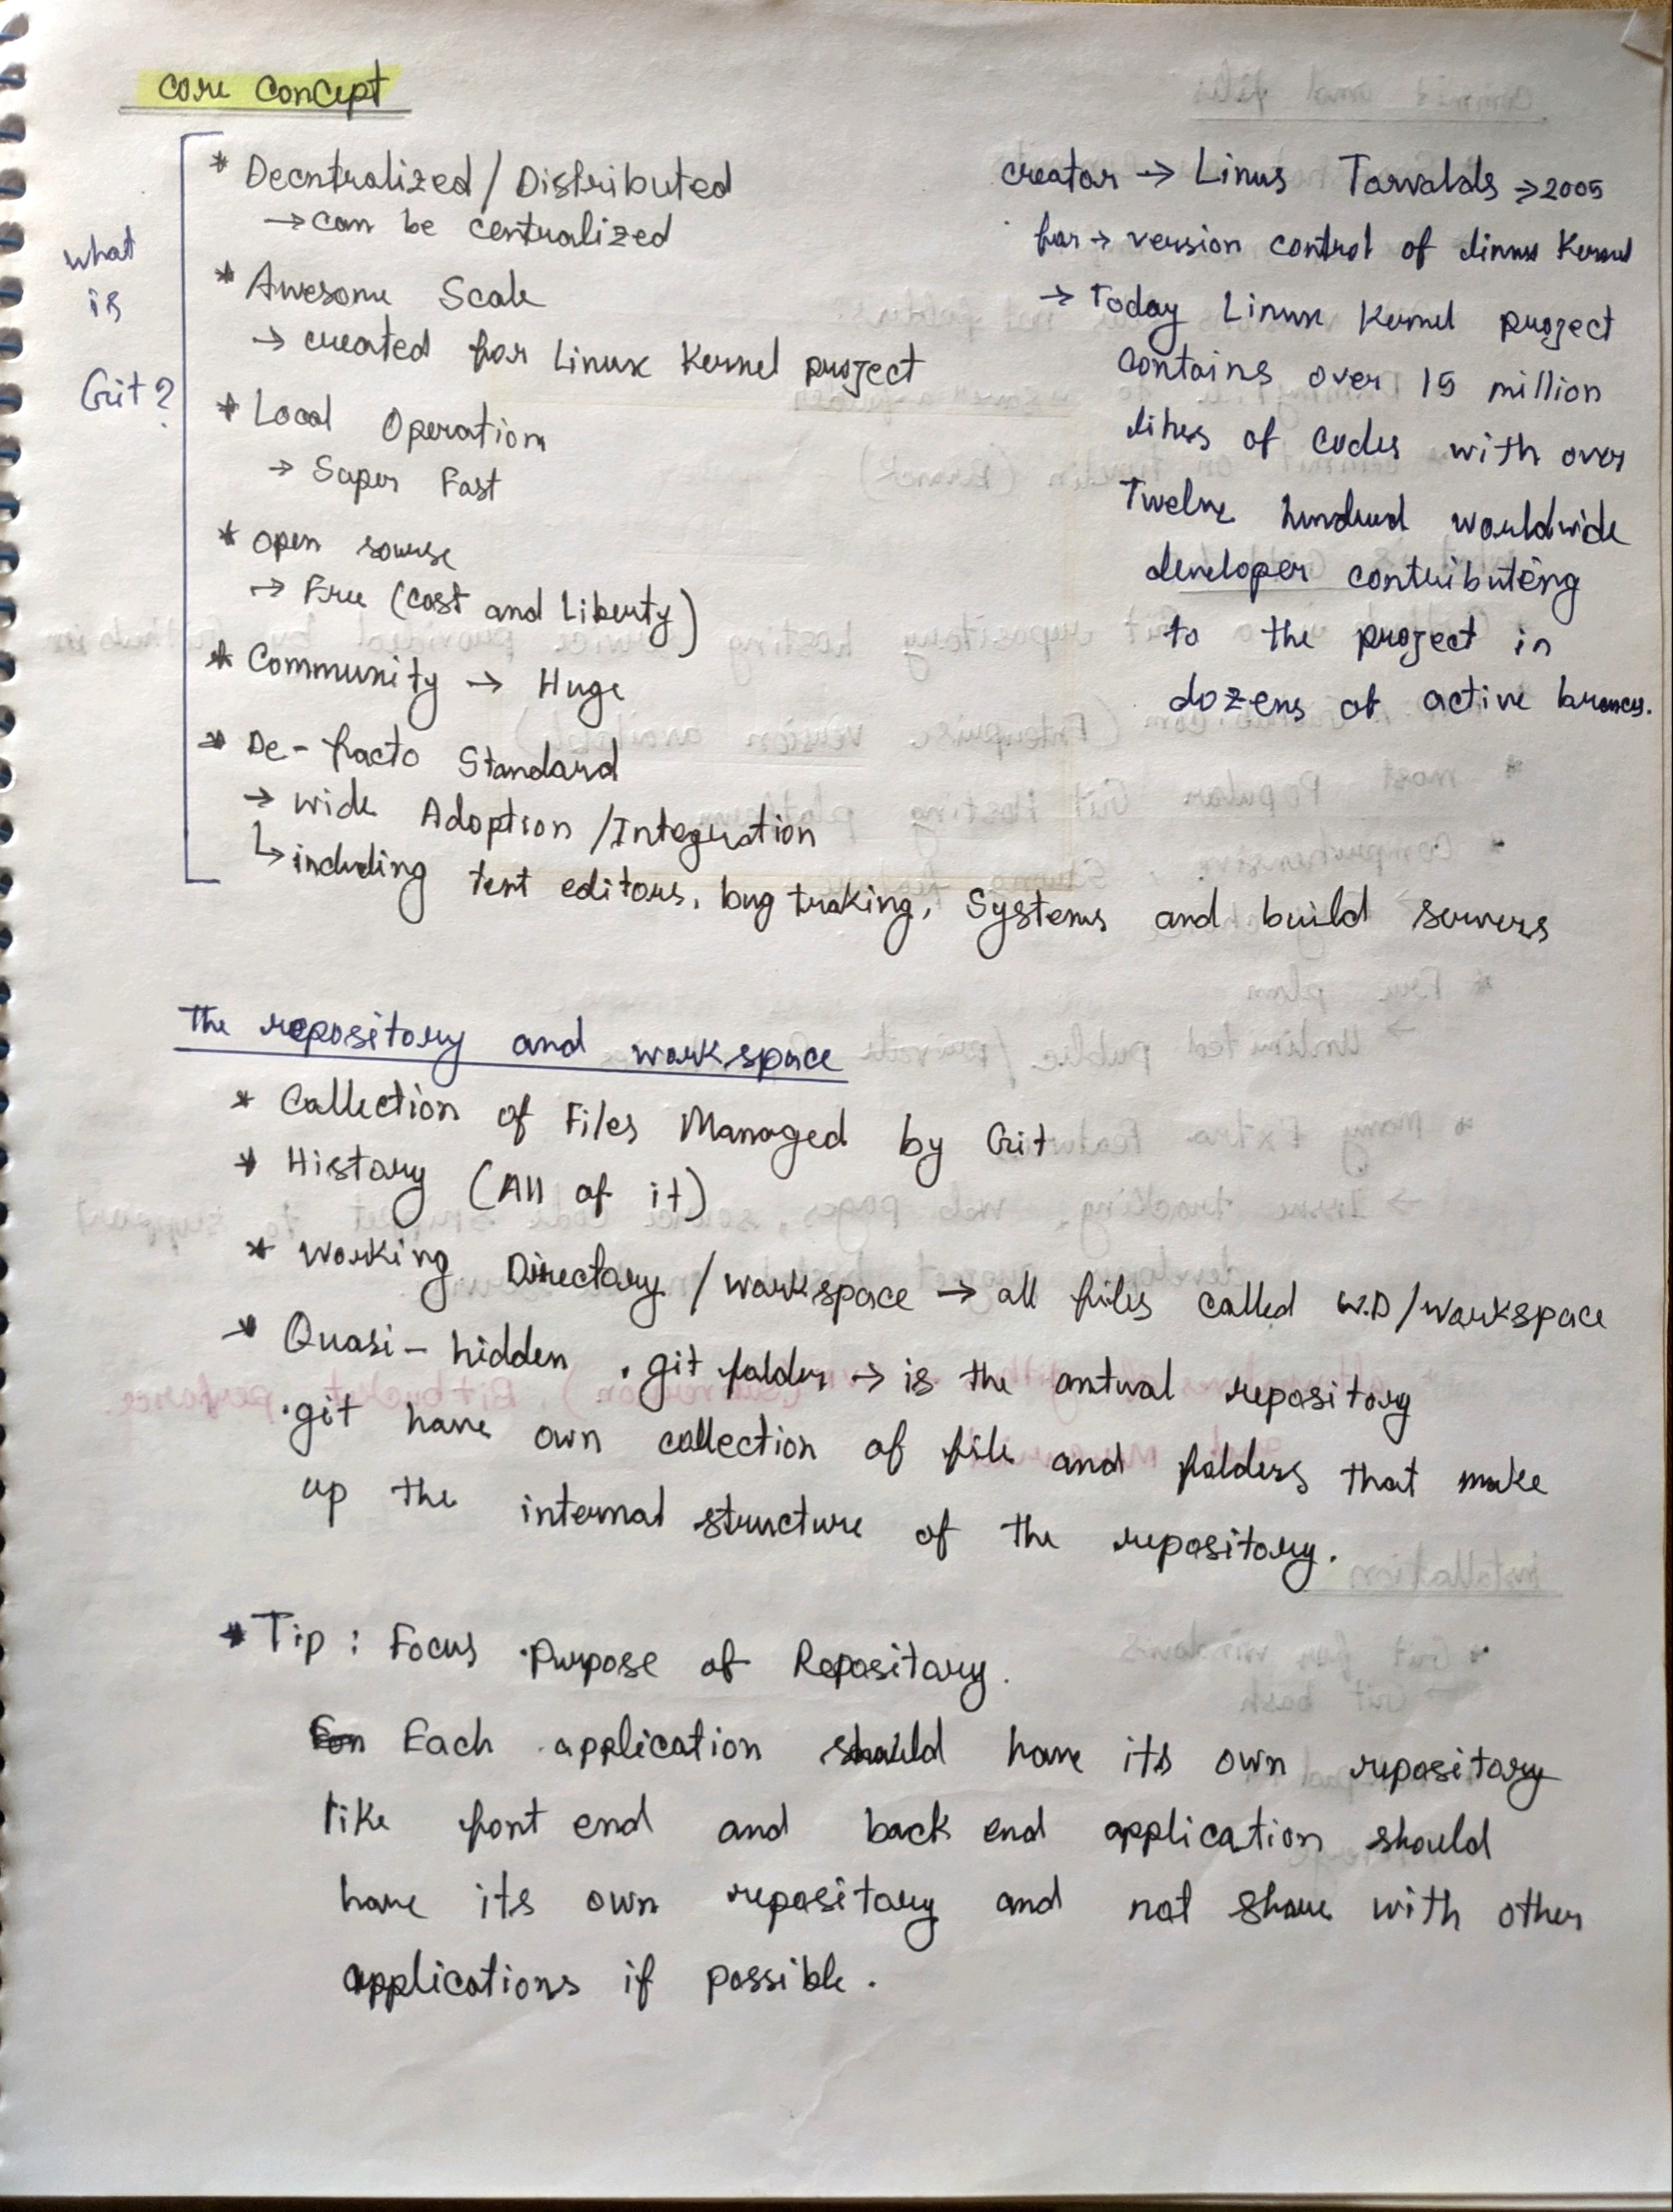 core concept
what
is
Git?
* Decntralized / Distributed
→ can be centralized
* Awesome Scale
→ created for Linux Kernel project
* Local Operation
→ Super Fast
* open sourse
→ Free (cost and Liberty)
* Community → Huge
* De-facto Standard
→ wide Adoption / Integration
↳ including text editors, bug traking, Systems and build servers
creator → Linus Torvalds → 2005
for → version control of linux Kernel
→ Today Linux Kernel project
contains over 15 million
lines of codes with over
Twelve hundred worldwide
developer contributing
to the project in
dozens of active
The repository and workspace
* Collection of Files Managed by Git
* History (All of it)
* Working Directory / workspace → all files called W.D / workspace
* Quasi-hidden .git folder → is the repository
.git have own collection of file and folders that make
up the internal structure of the repository.
* Tip : Focus Purpose of Repository.
Each application should have its own repository
like font end and back end application should
have its own repository and not share with other
applications if possible.